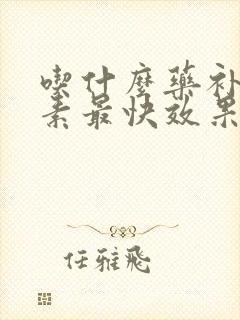 喫什麼藥补
素最快效果
任雅飛